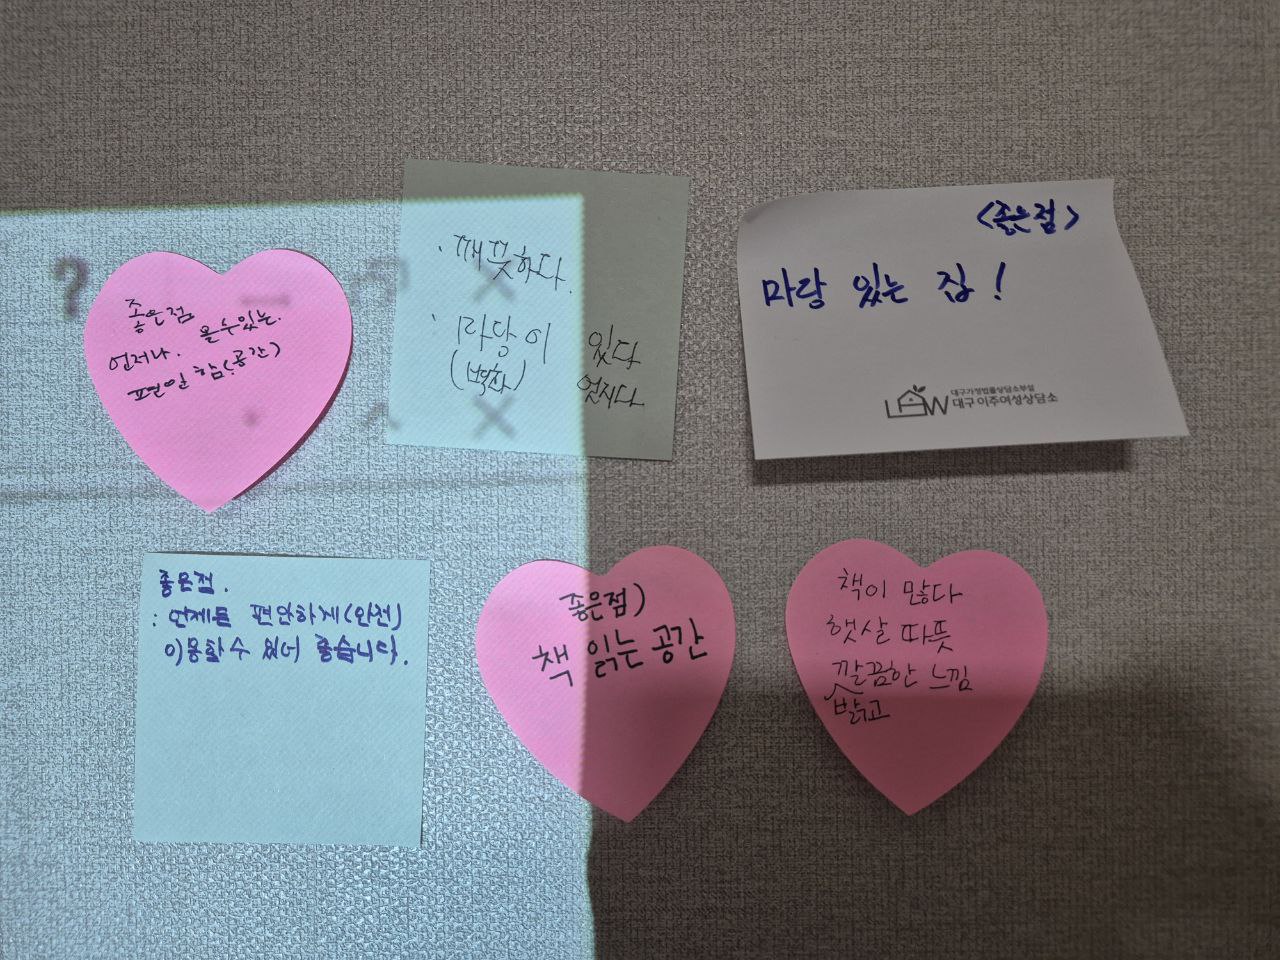 좋은점
언저나. 올수있는.
편안함(공간)
· 깨끗하다.
· 마당이 있다
(벅차) 멋지다
<좋은점>
마당 있는 집!
LAW
대구가정법률상담소부설
대구이주여성상담소
좋은점.
: 언제든 편안하게(안전)
이용할수 있어 좋습니다.
좋은점)
책 읽는 공간
책이 많다
햇살 따뜻
깔끔한 느낌
밝고
?